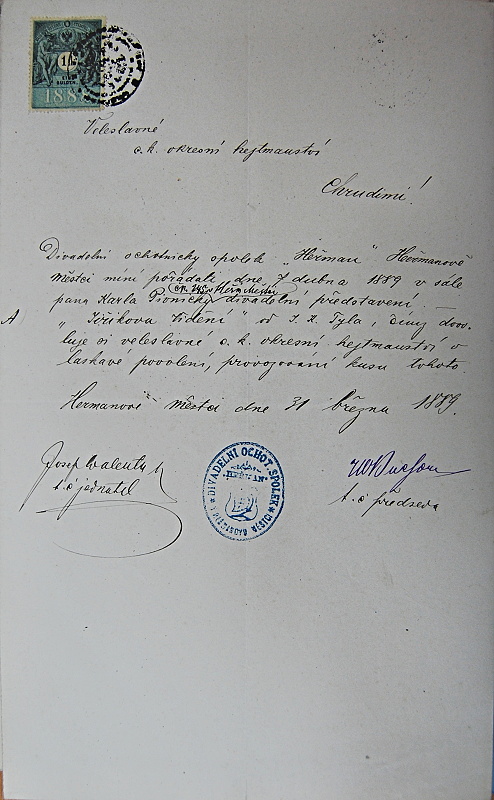 1888
Veleslavné
c. k. okresní hejtmanství
Chrudimi!
Divadelní ochotnický spolek „Heřman“ Heřmanově
Městci míní pořádati dne 7 dubna 1889 v sále
pana Karla divadelní představení —
„Jiříkovo Vidění“ od J. K. Tyla, čímž dovo-
luje si veleslavné c. k. okresní hejtmanství o
laskavé povolení, provozování kusu tohoto.
Heřmanově Městci dne 31 března 1889.
Josef
t. č. jednatel
t. č. předseda
DIVADELNÍ OCHOT. SPOLEK